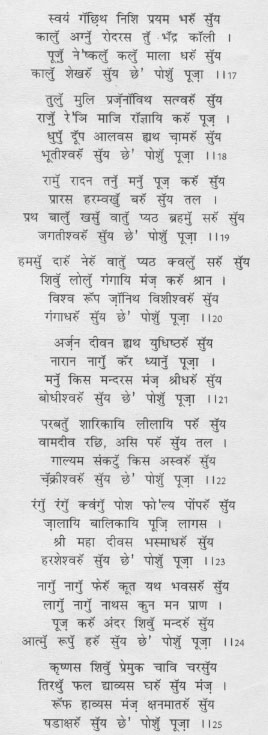 स्वयं गॅछिथ निशि प्रयम भरुँ सुँय
कालुँ अग्नुँ रोदरस तुँ भँद्र कॉली ।
पूज़ुँ ने'ष्कलुँ कलुँ माला धरुँ सुँय
कालुँ शेखरुँ सुँय छे' पोशुँ पूज़ा ।।17
तुलुँ मुलि प्रर्ज़नॉविथ सत्वरुँ सुँय
राजुँ रे'ञि माजि रॉज़ायि करुँ पूज़ ।
धुपुँ दूँप आलवस ह्यथ च़ामरुँ सुँय
भूतीश्वरुँ सुँय छे' पोशुँ पूज़ा ।।18
रामुँ रादन तनुँ मनुँ पूज़ करुँ सुँय
प्रारस हरम्वखुँ बरुँ सुँय तल ।
प्रथ बालुँ खसुँ वातुँ प्यठ ब्रहमुँ सरुँ सुँय
जगतीश्वरुँ सुँय छे' पोशुँ पूज़ा ।।19
हमसुँ दारुँ नेरुँ वातुँ प्यठ क्वलुँ सरुँ सुँय
शिवुँ लोलुँ गंगायि मंज़ करुँ श्रान ।
विश्व रूप ज़ॉनिथ विशीश्वरुँ सुँय
गंगाधरुँ सुँय छे' पोशुँ पूज़ा ।।20
अर्ज़न दीवन ह्यथ युधिष्ठरुँ सुँय
नारान नागुँ कॅर ध्यानुँ पूज़ा ।
मनुँ किस मन्दरस मंज़ श्रीधरुँ सुँय
बोधीश्वरुँ सुँय छे' पोशुँ पूज़ा ।।21
परबतुँ शारिकायि लीलायि परुँ सुँय
वामदीव रछि, असि परुँ सुँय तल ।
गाल्यम संकटुँ किस अस्वरुँ सुँय
चॅक्रीश्वरुँ सुँय छे' पोशुँ पूज़ा ।।22
रंगुँ रंगुँ क्वंगुँ पोश फो'ल्य पोंपरुँ सुँय
ज़ालायि बालिकायि पूज़ि लागस ।
श्री महा दीवस भस्माधरुँ सुँय
हरशेश्वरुँ सुँय छे' पोशुँ पूज़ा ।।23
नागुँ नागुँ फेरुँ कूत यथ भवसरुँ सुँय
लागुँ नागुँ नाथस कुन मन प्राण ।
पूज़ करुँ अंदर शिवुँ मन्दरुँ सुँय
आत्मुँ रूपुँ हरुँ सुँय छे' पोशुँ पूज़ा ।।24
कृष्णस शिवुँ प्रेमुक चावि चरसुँय
तिरथुँ फल द्याव्यस घरुँ सुँय मंज़ ।
रूफ हाव्यस मंज़ क्षनमातरुँ सुँय
षडाक्षरुँ सुँय छे' पोशुँ पूज़ा ।।25